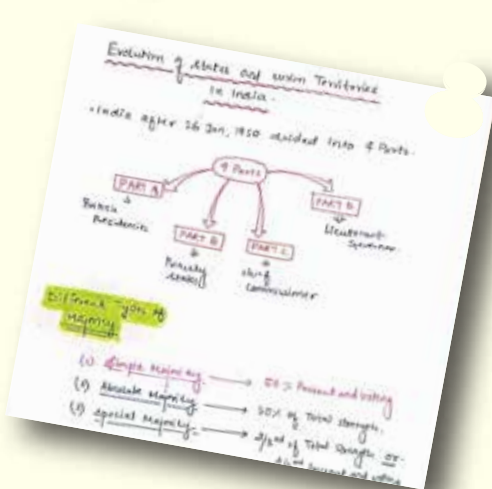 Evolution of States and union Territories
in India.
• India after 26 Jan, 1950 divided into 4 Parts.
4 Parts
PART A
British Presidencies
PART B
Princely States
PART C
Chief Commissioner
PART D
Lieutenant Governor
Different Types of
Majority
(1) Simple Majority → 50% Present and voting
(2) Absolute Majority → 50% of Total strength,
(3) Special Majority → 2/3rd of Total Strength or
2/3rd Present and voting